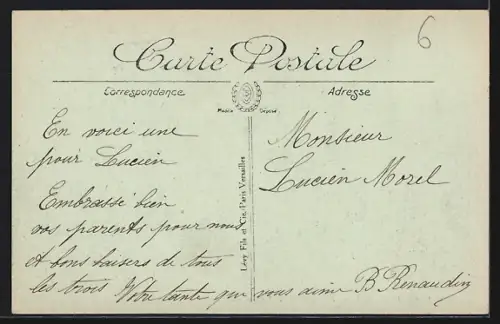 6
Carte Postale
Correspondance
Adresse
Modèle Déposé
Lévy Fils et Cie, Paris Versailles
En voici une
pour Lucien
Embrasse bien
vos parents pour nous
et bons baisers de tous
les trois Votre tante qui vous aime B Renaudin
Monsieur
Lucien Morel